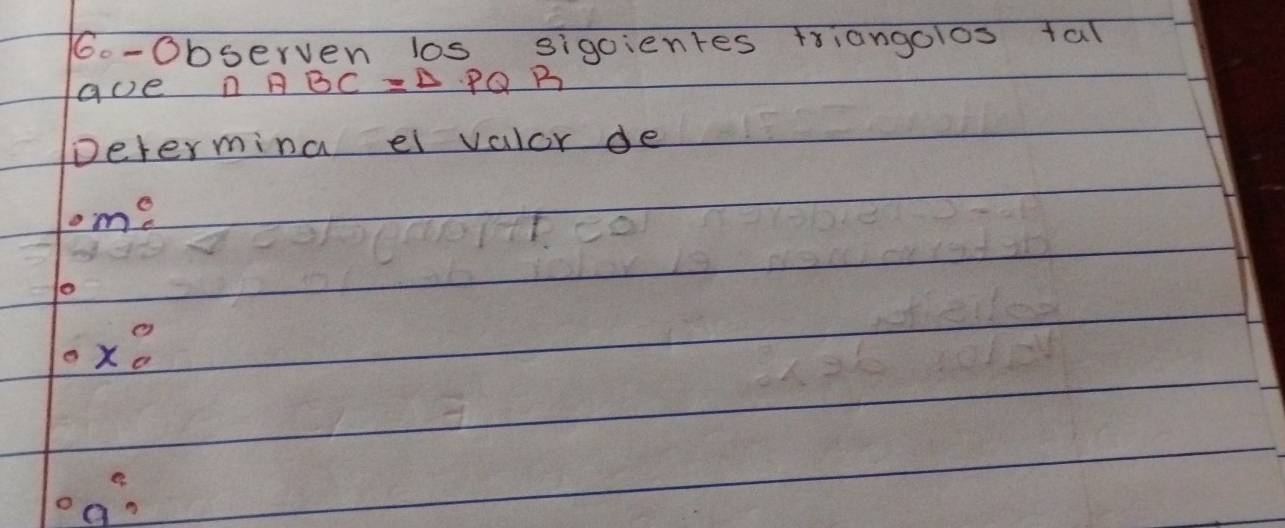 6.-Observen los sigoientes triangolos tal
que Δ ABC = Δ PQR
Determina el valor de
• m:
•
• x:
• a: